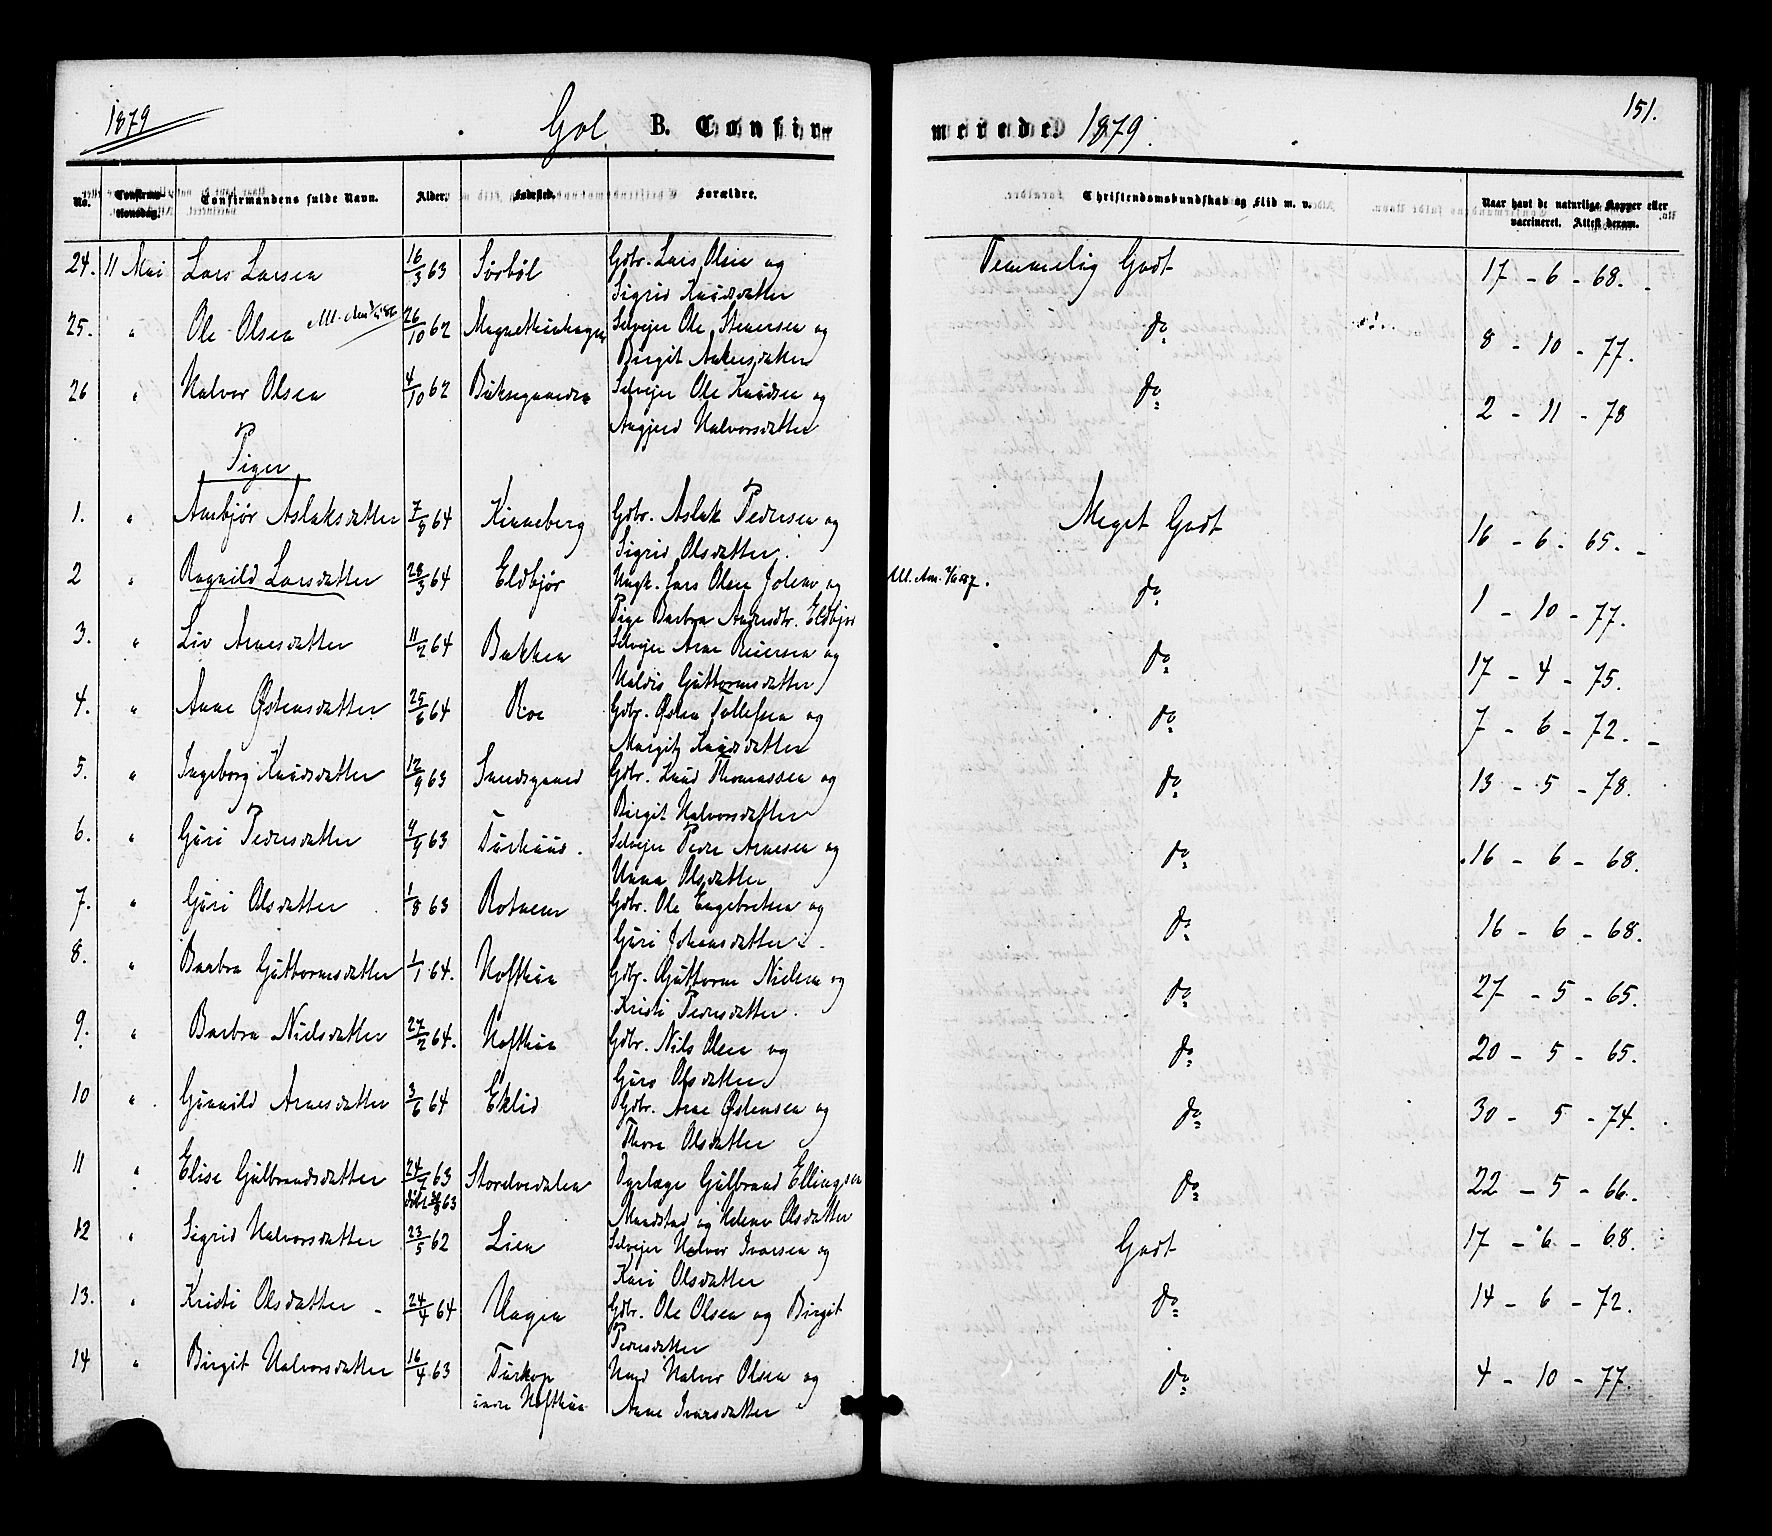 1879
Gol B. Confir-
merede. 1879.
151.
No. Confirmationsdag. Confirmandens fulde Navn. Alder. Fødested. Forældre. Christendomskundskab og Flid m. v. Naar havt de naturlige Kopper eller vaccineret. Attest derom.
24. 11 Mai Lars Larsen 16/3 63 Sørbøl Gdbr. Lars Olsen og Temmelig Godt 17 - 6 - 68.
Sigrid Knudsdatter
25. " Ole Olsen 26/10 62 Selvejer Ole Stenersen og do 8 - 10 - 77.
Birgit Andersdatter
26 " Halvor Olsen 4/10 62 Selvejer Ole Knudsen og do 2 - 11 - 78
Angjerd Halvorsdatter
Piger
1. " Ambjør Aslaksdatter 7/8 64 Kinneberg Gdbr. Aslak Pedersen og Meget Godt 16 - 6 - 65.
Sigrid Olsdatter.
2 " Ragnild Larsdatter 28/3 64 Eldbjør Ungk. Lars Olsen og do 1 - 10 - 77.
Pige Barbra Andersdtr. Eldbjør
3. " Liv Arnesdatter 11/2 64 Bakken Selvejer Arne Reiersen og do 17 - 4 - 75.
Haldis Guttormsdatter
4. " Anne Østensdatter 25/6 64 Roe Gdbr. Østen Tollefsen og do 7 - 6 - 72.
Margit Knudsdatter
5. " Ingeborg Knudsdatter 12/9 63 Sandsgaard Gdbr. Knud Thomassen og do 13 - 5 - 78.
Birgit Halvorsdatter
6. " Guri Pedersdatter 4/9 63 Selvejer Peder Arnesen og do 16 - 6 - 68.
Unna Olsdatter
7. " Guri Olsdatter 1/8 63 Rotneim Gdbr. Ole Engebretsen og do 16 - 6 - 68.
Guri Johansdatter.
8. " Barbra Guttormsdatter 1/1 64. Hoftun Gdbr. Guttorm Nielsen og do 27 - 5 - 65.
Kristi Pedersdatter.
9. " Barbra Nielsdatter 27/2 64. Hoftun Gdbr. Nils Olsen og do 20 - 5 - 65.
Guro Olsdatter
10 " Gunild Arnesdatter 3/6 64 Eklid Gdbr. Arne Østensen og do 30 - 5 - 74.
Thora Olsdatter
11 " Elise Gulbrandsdatter 24/7 63 Storelvedalen Dyrlæge Gulbrand Ellingsen do 22 - 5 - 66.
og Helene Olsdatter
12 " Sigrid Halvorsdatter 23/5 62 Lien Selvejer Halvor Ivarsen og Godt 17 - 6 - 68.
Kari Olsdatter
13. " Kristi Olsdatter 24/4 64 Hagen Gdbr. Ole Olsen og Birgit do 14 - 6 - 72.
Pedersdatter
14 " Birgit Halvorsdatter 16/4 63 Halvor Olsen og do 4 - 10 - 77.
Hoftun Anne Ivarsdatter